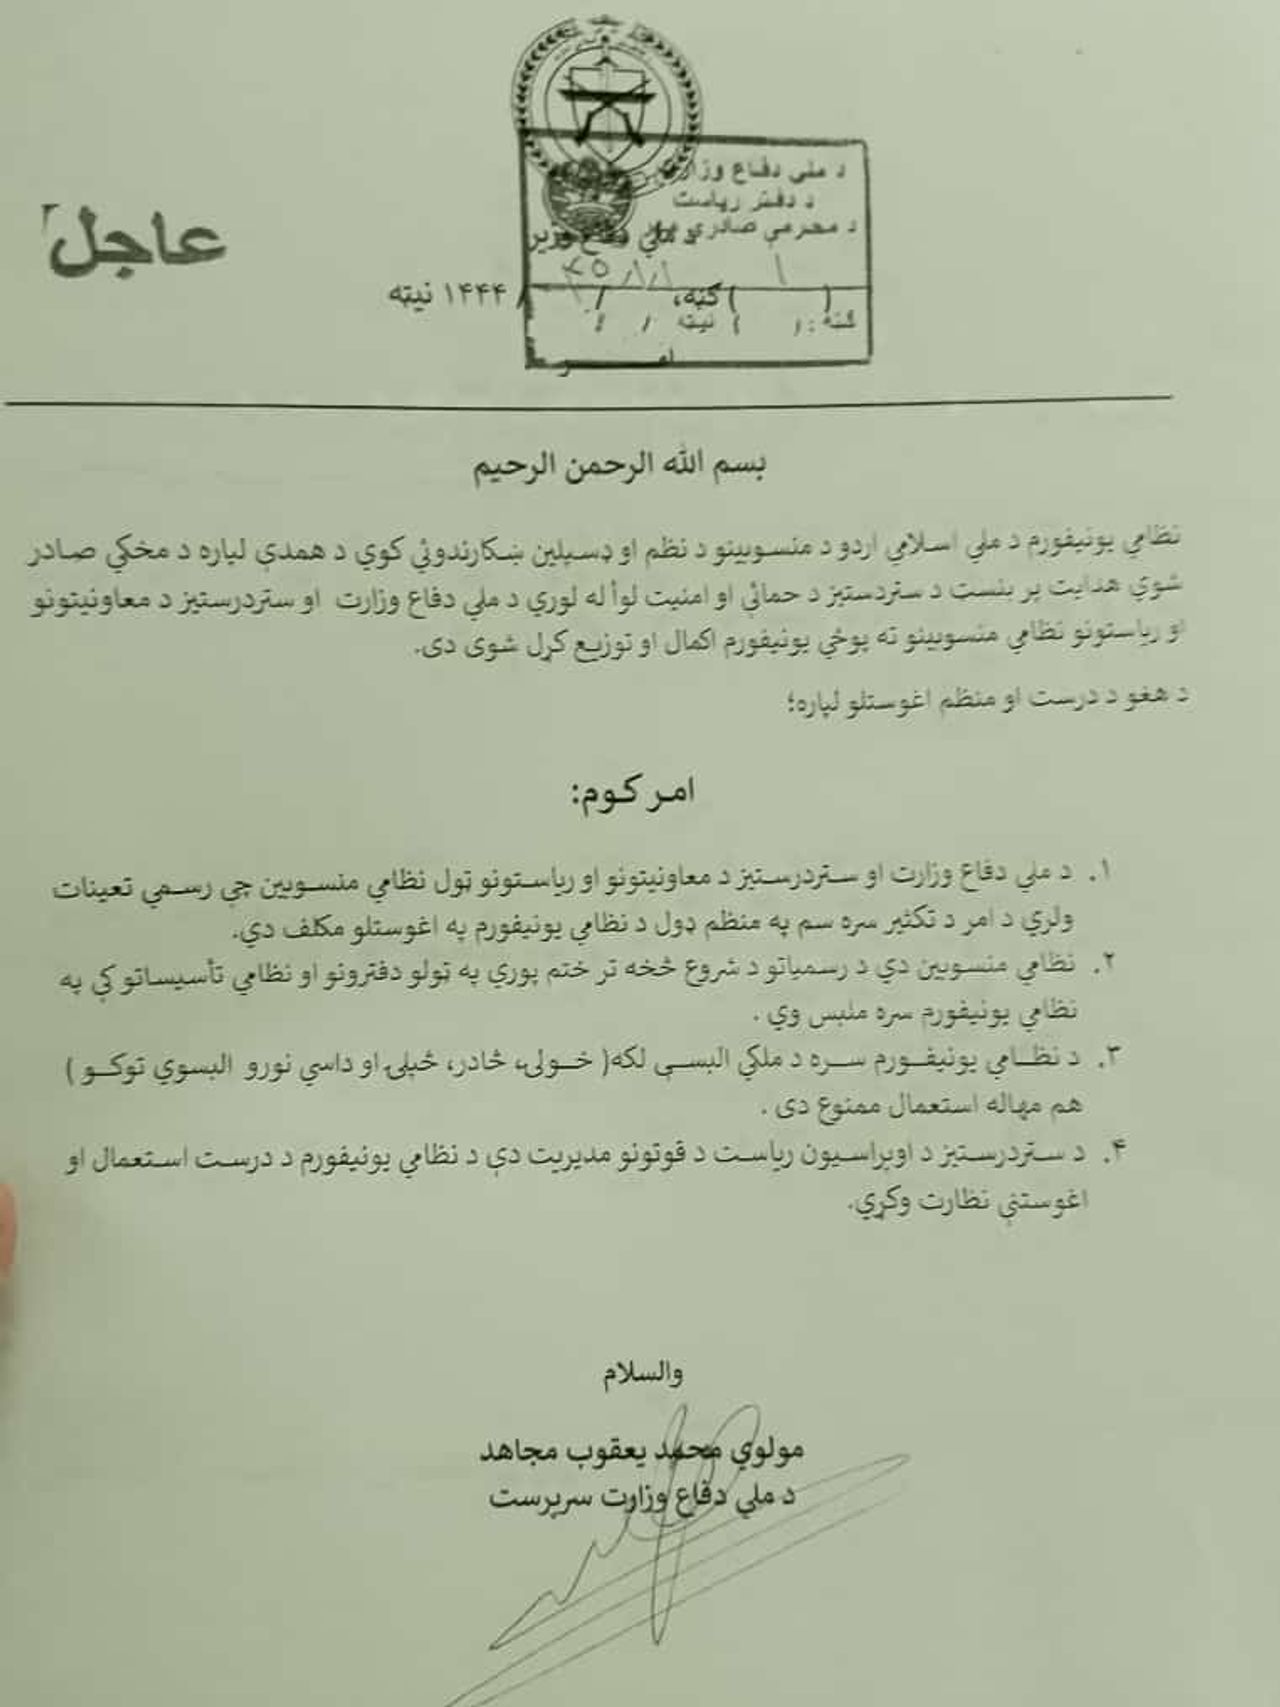 د ملي دفاع وزارت
د دفتر ریاست
د محرمې صادرې مهر
د ملي دفاع وزیر
عاجل
( ۱ ) ګڼه، / / ۱۴۴۴ نیټه
ګڼه: ( ) نیټه / /
امـــــر
بسم الله الرحمن الرحیم
نظامي یونیفورم د ملي اسلامي اردو د منسوبینو د نظم او ډسپلین ښکارندوئي کوي د همدې لپاره د مخکې صادر
شوي هدایت پر بنسټ د ستردستیز د حمائې او امنیت لوأ له لوري د ملي دفاع وزارت او ستردرستیز د معاونیتونو
او ریاستونو نظامي منسوبینو ته پوځي یونیفورم اکمال او توزیع کړل شوی دی.
د هغو د درست او منظم اغوستلو لپاره؛
امر کوم:
۱. د ملي دفاع وزارت او ستردرستیز د معاونیتونو او ریاستونو ټول نظامي منسوبین چې رسمي تعینات
ولري د امر د تکثیر سره سم په منظم ډول د نظامي یونیفورم په اغوستلو مکلف دي.
۲. نظامي منسوبین دي د رسمیاتو د شروع څخه تر ختم پوري په ټولو دفترونو او نظامي تأسیساتو کې په
نظامي یونیفورم سره ملبس وي .
۳. د نظامي یونیفورم سره د ملکي البسې لکه( خولۍ، څادر، څپلۍ او داسي نورو البسوي توکو )
هم مهاله استعمال ممنوع دی .
۴. د ستردرستیز د اوپراسیون ریاست د قوتونو مدیریت دې د نظامي یونیفورم د درست استعمال او
اغوستنې نظارت وکړي.
والسلام
مولوي محمد یعقوب مجاهد
د ملي دفاع وزارت سرپرست